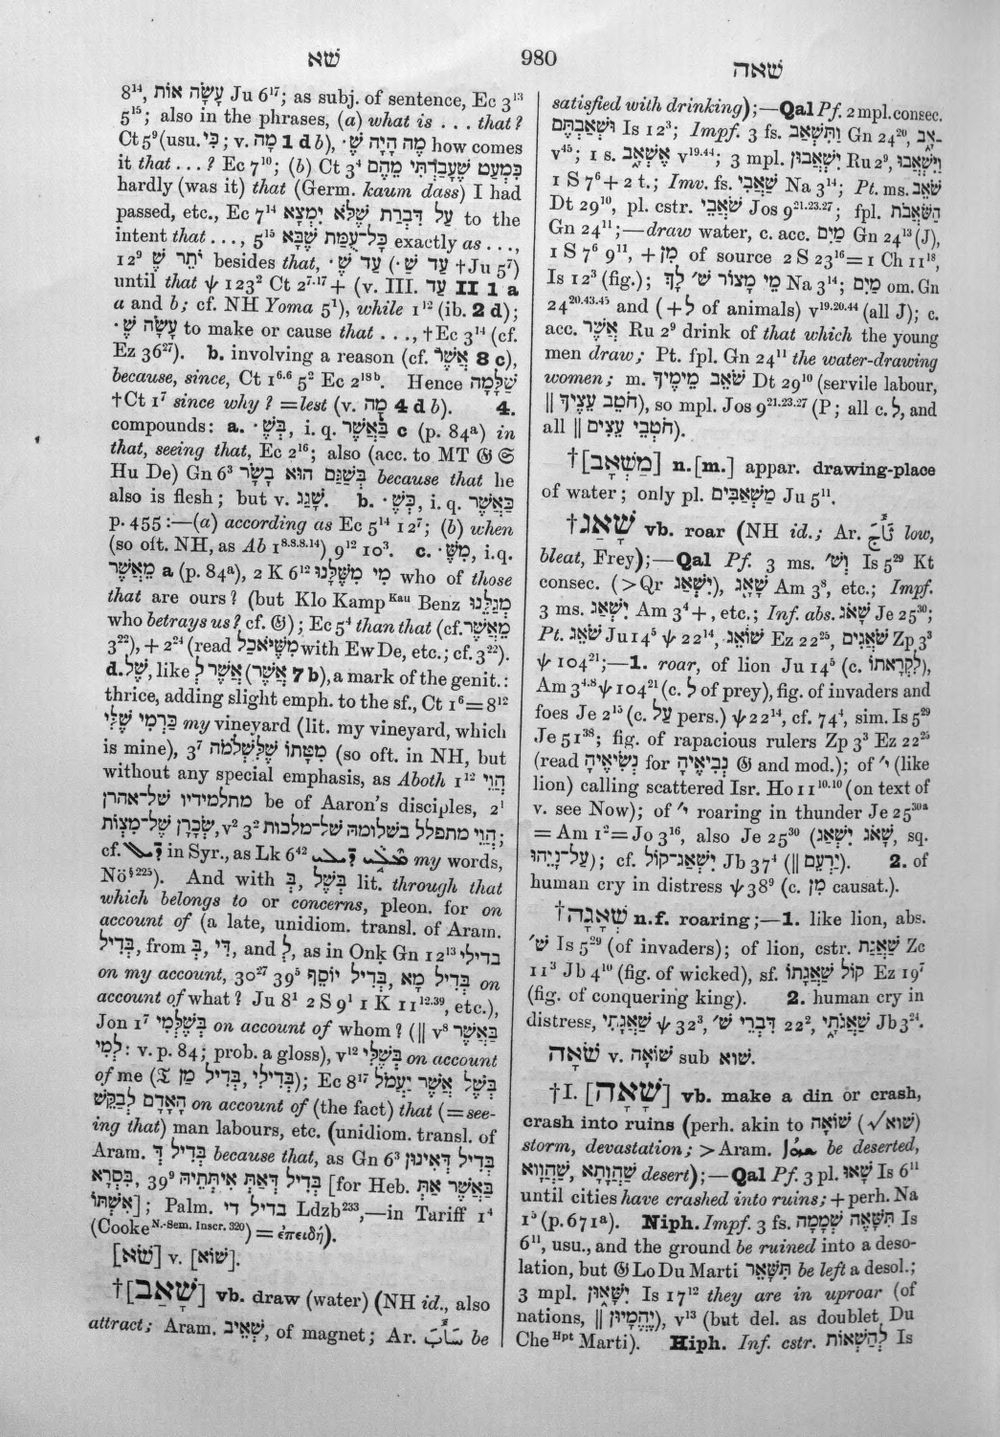 שׁא
980
שׁאה
8¹⁴, עָשָׂה אוֹת Ju 6¹⁷; as subj. of sentence, Ec 3¹³
5¹⁵; also in the phrases, (a) what is . . . that?
Ct 5⁹ (usu. כִּי; v. מָה 1 d b), מֶה הָיָה שֶׁ· how comes
it that . . . ? Ec 7¹⁰; (b) Ct 3⁴ כִּמְעַט שֶׁעָבַרְתִּי מֵהֶם
hardly (was it) that (Germ. kaum dass) I had
passed, etc., Ec 7¹⁴ עַל דִּבְרַת שֶׁלֹּא יִמְצָא to the
intent that . . ., 5¹⁵ כָּל־עֻמַּת שֶׁבָּא exactly as . . .,
12⁹ יֹתֵר שֶׁ besides that, עַד שֶׁ· (עַד שַׁ· †Ju 5⁷)
until that ψ 123² Ct 2⁷·¹⁷ + (v. III. עַד II 1 a
a and b; cf. NH Yoma 5¹), while 1¹² (ib. 2 d);
עָשָׂה שֶׁ· to make or cause that . . ., †Ec 3¹⁴ (cf.
Ez 36²⁷). b. involving a reason (cf. אֲשֶׁר 8 c),
because, since, Ct 1⁶·⁶ 5² Ec 2¹⁸ᵇ. Hence שַׁלָּמָה
†Ct 1⁷ since why? = lest (v. מָה 4 d b). 4.
compounds: a. בְּשֶׁ·, i. q. בַּאֲשֶׁר c (p. 84ᵃ) in
that, seeing that, Ec 2¹⁶; also (acc. to MT 𝔊 𝔖
Hu De) Gn 6³ בְּשַׁגַּם הוּא בָשָׂר because that he
also is flesh; but v. שָׁגַג. b. כְּשֶׁ·, i. q. כַּאֲשֶׁר
p. 455:—(a) according as Ec 5¹⁴ 12⁷; (b) when
(so oft. NH, as Ab 1⁸·⁸·⁸·¹⁴) 9¹² 10³. c. מִשֶּׁ·, i.q.
מֵאֲשֶׁר a (p. 84ᵃ), 2 K 6¹² מִי מִשֶּׁלָּנוּ who of those
that are ours? (but Klo Kamp ᴷᵃᵘ Benz מְגַלֵּנוּ
who betrays us? cf. 𝔊); Ec 5⁴ than that (cf. מֵאֲשֶׁר
3²²), + 2²⁴ (read מִשֶּׁיֹּאכַל with Ew De, etc.; cf. 3²²).
d. שֶׁל, like אֲשֶׁר לְ (אֲשֶׁר 7 b), a mark of the genit.:
thrice, adding slight emph. to the sf., Ct 1⁶ = 8¹²
כַּרְמִי שֶׁלִּי my vineyard (lit. my vineyard, which
is mine), 3⁷ מִטָּתוֹ שֶׁלִּשְׁלֹמֹה (so oft. in NH, but
without any special emphasis, as Aboth 1¹² הֱוֵי
מתלמידיו של־אהרן be of Aaron's disciples, 2¹
שְׂכָרָן שֶׁל־מִצְוֹת, v² 3² הֱוֵי מתפלל בשלומה של־מלכות;
cf. in Syr., as Lk 6⁴² my words,
Nö§²²⁵). And with בְּ, בְּשֶׁל lit. through that
which belongs to or concerns, pleon. for on
account of (a late, unidiom. transl. of Aram.
בְּדִיל, from בְּ, דִּי, and לְ, as in Onk Gn 12¹³ בדילי
on my account, 30²⁷ 39⁵ בְּדִיל מָא, בְּדִיל יוֹסֵף on
account of what? Ju 8¹ 2 S 9¹ 1 K 11¹²·³⁹, etc.),
Jon 1⁷ בְּשֶׁלְּמִי on account of whom? (‖ v⁸ בַּאֲשֶׁר
לְמִי: v. p. 84; prob. a gloss), v¹² בְּשֶׁלִּי on account
of me (𝔗 בְּדִילִי, בְּדִיל מַן); Ec 8¹⁷ בְּשֶׁל אֲשֶׁר יַעֲמֹל
הָאָדָם לְבַקֵּשׁ on account of (the fact) that (= see-
ing that) man labours, etc. (unidiom. transl. of
Aram. בְּדִיל דְּ because that, as Gn 6³ בְּדִיל דְּאִינּוּן
בִּסְרָא, 39⁹ בְּדִיל דְּאַתְּ אִיתְּתֵיהּ [for Heb. בַּאֲשֶׁר אַתְּ
אִשְׁתּוֹ]; Palm. בדיל די Ldzb²³³,—in Tariff 1⁴
(Cooke N.-Sem. Inscr. 320) = ἐπειδή).
[שֹׁא] v. [שׁוֹא].
†[שָׁאַב] vb. draw (water) (NH id., also
attract; Aram. שְׁאֵיב, of magnet; Ar. سَأَبَ be
satisfied with drinking);—Qal Pf. 2 mpl. consec.
וּשְׁאַבְתֶּם Is 12³; Impf. 3 fs. וַתִּשְׁאַב Gn 24²⁰, ־אָב
v⁴⁵; 1 s. אֶשְׁאָב v¹⁹·⁴⁴; 3 mpl. יִשְׁאֲבוּן Ru 2⁹, וַיִּשְׁאֲבוּ
1 S 7⁶ + 2 t.; Imv. fs. שַׁאֲבִי Na 3¹⁴; Pt. ms. שֹׁאֵב
Dt 29¹⁰, pl. cstr. שֹׁאֲבֵי Jos 9²¹·²³·²⁷; fpl. הַשֹּׁאֲבֹת
Gn 24¹¹;—draw water, c. acc. מַיִם Gn 24¹³ (J),
1 S 7⁶ 9¹¹, + מִן of source 2 S 23¹⁶ = 1 Ch 11¹⁸,
Is 12³ (fig.); מֵי מָצוֹר שׁ׳ לָךְ Na 3¹⁴; מַיִם om. Gn
24²⁰·⁴³·⁴⁵ and (+ לְ of animals) v¹⁹·²⁰·⁴⁴ (all J); c.
acc. אֲשֶׁר Ru 2⁹ drink of that which the young
men draw; Pt. fpl. Gn 24¹¹ the water-drawing
women; m. שֹׁאֵב מֵימֶיךָ Dt 29¹⁰ (servile labour,
‖ חֹטֵב עֵצֶיךָ), so mpl. Jos 9²¹·²³·²⁷ (P; all c. לְ, and
all ‖ חֹטְבֵי עֵצִים).
†[מַשְׁאָב] n.[m.] appar. drawing-place
of water; only pl. מַשְׁאַבִּים Ju 5¹¹.
†שָׁאַג vb. roar (NH id.; Ar. ثَأَجَ low,
bleat, Frey);—Qal Pf. 3 ms. וְשׁ׳ Is 5²⁹ Kt
consec. (> Qr יִשְׁאַג), שָׁאָג Am 3⁸, etc.; Impf.
3 ms. יִשְׁאַג Am 3⁴ +, etc.; Inf. abs. שָׁאֹג Je 25³⁰;
Pt. שֹׁאֵג Ju 14⁵ ψ 22¹⁴, שׁוֹאֵג Ez 22²⁵, שֹׁאֲגִים Zp 3³
ψ 104²¹;—1. roar, of lion Ju 14⁵ (c. לִקְרָאתוֹ),
Am 3⁴·⁸ ψ 104²¹ (c. לְ of prey), fig. of invaders and
foes Je 2¹⁵ (c. עַל pers.) ψ 22¹⁴, cf. 74⁴, sim. Is 5²⁹
Je 51³⁸; fig. of rapacious rulers Zp 3³ Ez 22²⁵
(read נְשִׂיאֶיהָ for נְבִיאֶיהָ 𝔊 and mod.); of י׳ (like
lion) calling scattered Isr. Ho 11¹⁰·¹⁰ (on text of
v. see Now); of י׳ roaring in thunder Je 25³⁰ᵃ
= Am 1² = Jo 3¹⁶, also Je 25³⁰ (שָׁאֹג יִשְׁאַג, sq.
עַל־נָוֵהוּ); cf. יִשְׁאַג־קוֹל Jb 37⁴ (‖ יַרְעֵם). 2. of
human cry in distress ψ 38⁹ (c. מִן causat.).
†שְׁאָגָה n.f. roaring;—1. like lion, abs.
שׁ׳ Is 5²⁹ (of invaders); of lion, cstr. שַׁאֲגַת Zc
11³ Jb 4¹⁰ (fig. of wicked), sf. קוֹל שַׁאֲגָתוֹ Ez 19⁷
(fig. of conquering king). 2. human cry in
distress, שַׁאֲגָתִי ψ 32³, דִּבְרֵי שׁ׳ 22², שַׁאֲגֹתָי Jb 3²⁴.
שֹׁאָה v. שׁוֹאָה sub שׁוא.
†I. [שָׁאָה] vb. make a din or crash,
crash into ruins (perh. akin to שׁוֹאָה (√שׁוא)
storm, devastation; > Aram. be deserted,
שַׁהֲוָתָא, שַׁהֲוָוא desert);—Qal Pf. 3 pl. שָׁאוּ Is 6¹¹
until cities have crashed into ruins; + perh. Na
1⁵ (p. 671ᵃ). Niph. Impf. 3 fs. תִּשָּׁאֶה שְׁמָמָה Is
6¹¹, usu., and the ground be ruined into a deso-
lation, but 𝔊 Lo Du Marti תִּשָּׁאֵר be left a desol.;
3 mpl. יִשָּׁאוּן Is 17¹² they are in uproar (of
nations, ‖ יֶהֱמָיוּן), v¹³ (but del. as doublet Du
Che ᴴᵖᵗ Marti). Hiph. Inf. cstr. לְהַשְׁאוֹת Is